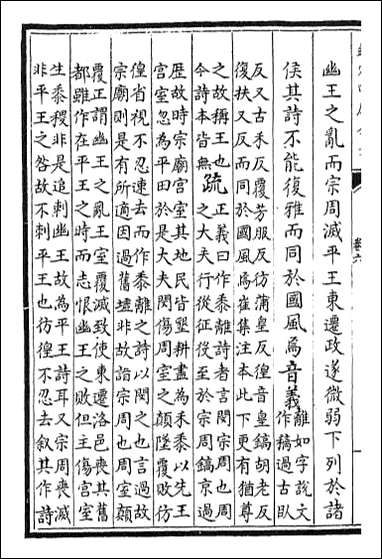 幽王之亂而宗周滅平王東遷政遂微弱下列於諸
侯其詩不能復雅而同於國風焉音義離如字說文
作稿過古臥
反又古禾反覆芳服反彷蒲皇反徨音皇鎬胡老反
復扶又反而同於國風焉崔集注本此下更有猶尊
之故稱王也
今詩本皆無
疏
正義曰作黍離詩者言閔宗周也周
之大夫行從征役至於宗周鎬京過
歷故時宗廟宮室其地民皆墾耕盡為禾黍以先王
宮室忽為平田於是大夫閔傷周室之顛墜覆敗彷
徨省視不忍速去而作黍離之詩以閔之也言過故
宗廟則是有所適因過舊墟非故詣宗周也周室顛
覆正謂幽王之亂王室覆滅致使東遷洛邑喪其舊
都雖作在平王之時而志恨幽王之敗但主傷宮室
生黍稷非是追刺幽王故為平王詩耳又宗周喪滅
非平王之咎故不刺平王也彷徨不忍去叙其作詩
卷六